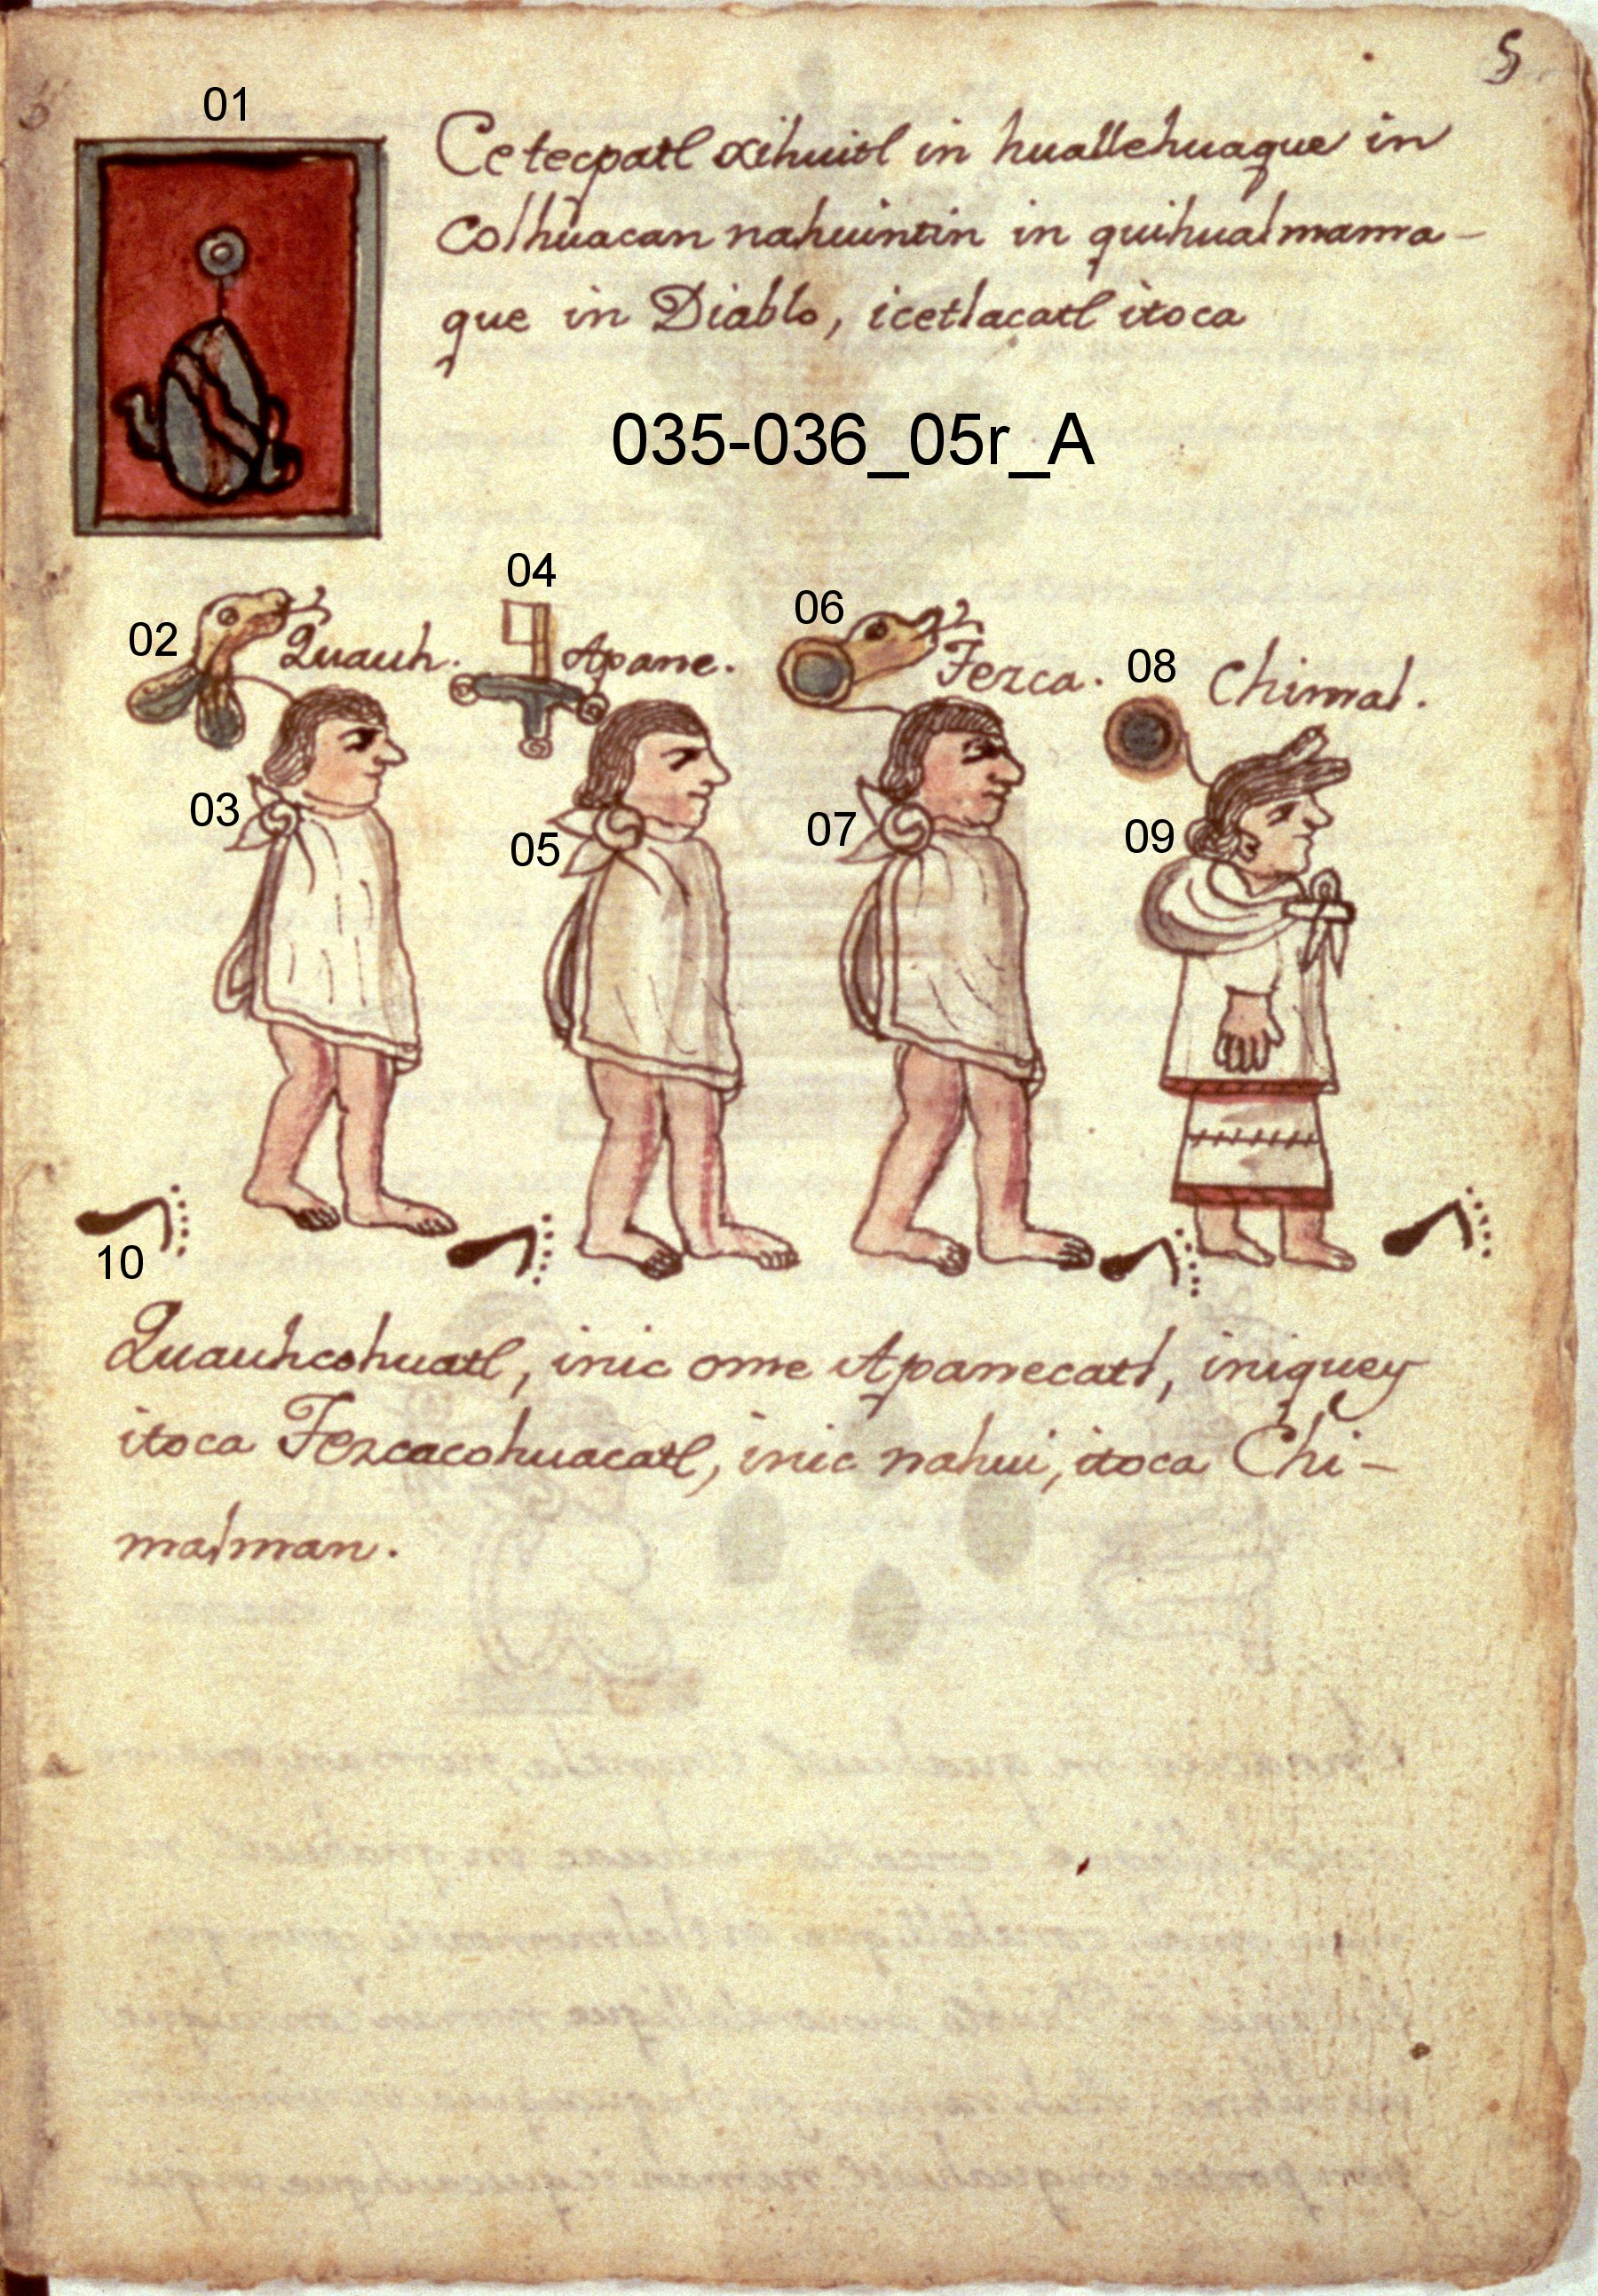 5
01
Ce tecpatl xihuitl in huallehuaque in
Colhuacan nahuintin in quihualmama-
que in Diablo, icetlacatl itoca
035-036_05r_A
02 Quauh. 04 Apane. 06 Tezca. 08 Chimal.
03 05 07 09
10
Quauhcohuatl, inic ome Apanecatl, iniquey
itoca Tezcacohuacatl, inic nahui, itoca Chi-
malman.